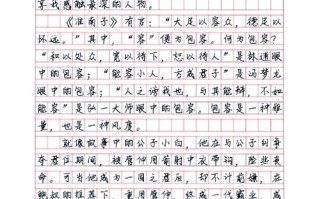 享我感触最深的人物。
《淮南子》有言："大足以容众，德足以
怀远。"其中，"容"便为包容。何为包容？
"和以处众，宽以待下，恕以待人"是林通眼
中的包容；"能容小人，方成君子"是冯梦龙
眼中的包容；"人之谤我也，与其能辩，不如
能容"是弘一大师眼中的包容。包容是一种雅
量，也是一种风度。
就像故事中的公子小白，他在与公子纠争
夺君位期间，被管仲用箭射中衣带钩，险些丧
命。可当他成为一国之君后，却不计前嫌，在
鲍叔的推荐下，重用管仲，终成一代霸业，成